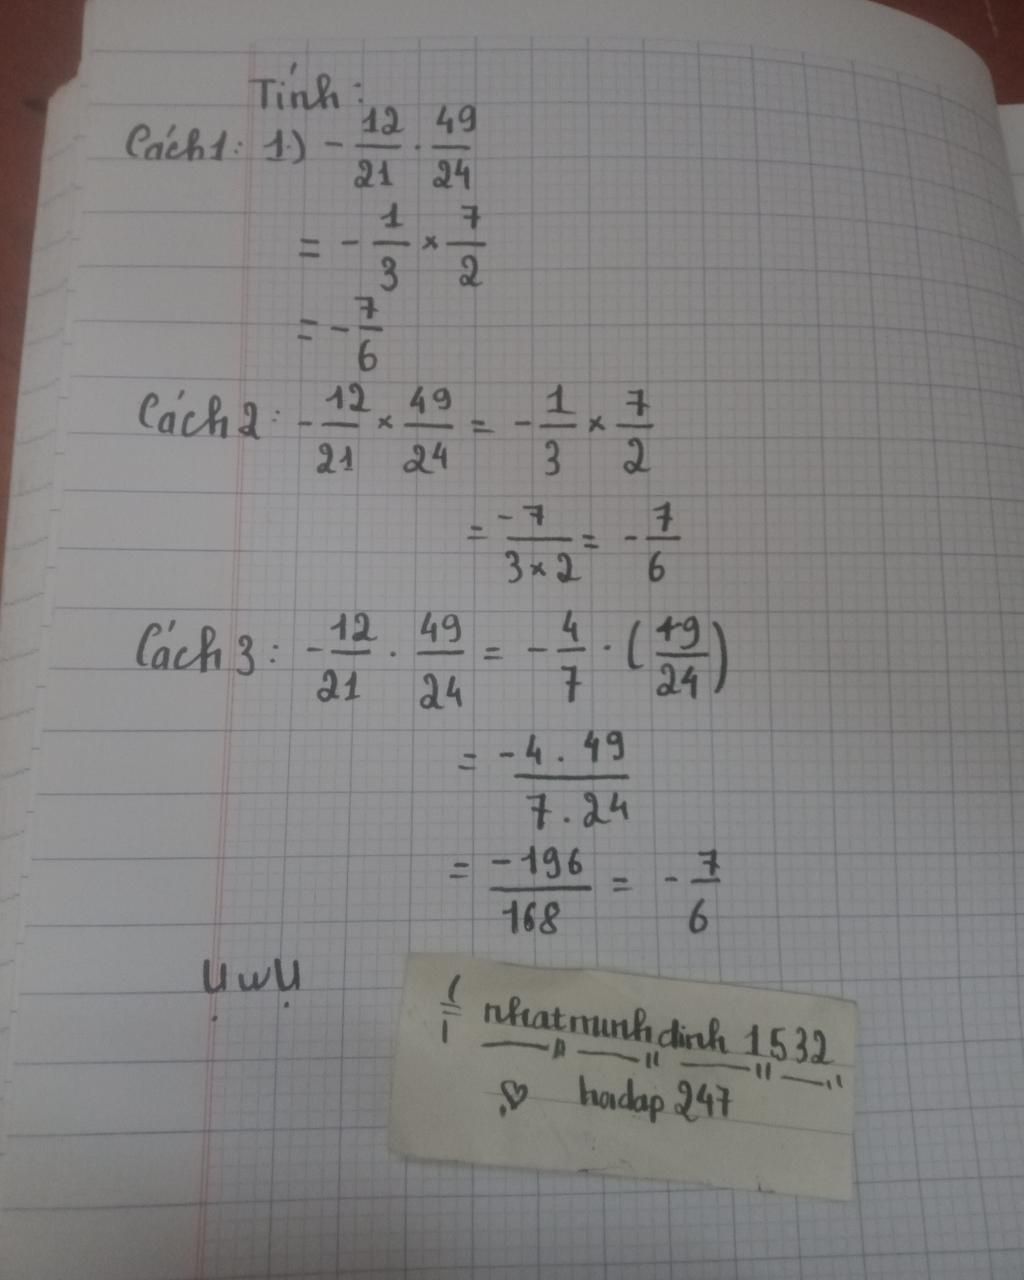 Tính:
Cách 1: 1) - 12/21 . 49/24
= - 1/3 × 7/2
= - 7/6
Cách 2: - 12/21 × 49/24 = - 1/3 × 7/2
= -7/(3×2) = - 7/6
Cách 3: - 12/21 . 49/24 = - 4/7 . (49/24)
= (-4 . 49)/(7 . 24)
= -196/168 = - 7/6
UwU
nhatminhdinh 1532
hoidap 247